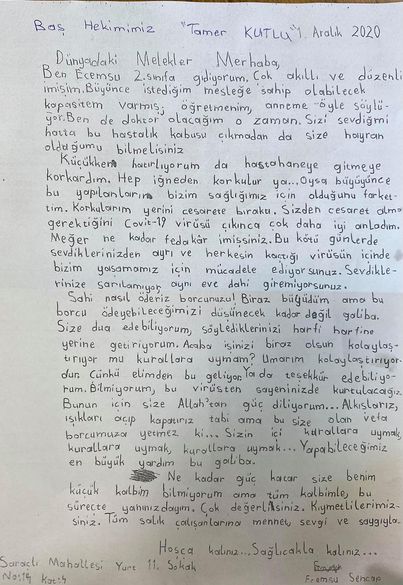 Baş Hekimimiz "Tamer KUTLU" 1. Aralık 2020
Dünyadaki Melekler Merhaba,
Ben Ecemsu 2.sınıfa gidiyorum. Çok akıllı ve düzenli
imişim. Büyünce istediğim mesleğe sahip olabilecek
kapasitem varmış, öğretmenim, anneme öyle söylü-
yor. Ben de doktor olacağım o zaman. Sizi sevdiğmi
hatta bu hastalık kabusu çıkmadan da size hayran
olduğumu bilmelisiniz
Küçükken hatırlıyorum da hastahaneye gitmeye
korkardım. Hep iğneden korkulur ya... Oysa büyüyünce
bu yapılanların bizim sağlığımız için olduğunu farket-
tim. Korkularım yerini cesarete bıraktı. Sizden cesaret alma
gerektiğini Covit-19 virüsü çıkınca çok daha iyi anladım.
Meğer ne kadar fedakâr imişsiniz. Bu kötü günlerde
sevdiklerinizden ayrı ve herkesin kaçtığı virüsün içinde
bizim yaşamamız için mücadele ediyorsunuz. Sevdikle-
rinize sarılamıyor aynı eve dahi giremiyorsunuz.
Sahi nasıl öderiz borcunuzu! Biraz büyüdüm ama bu
borcu ödeyebileceğimizi düşünecek kadar değil galiba.
Size dua edebiliyorum, söylediklerinizi harfi harfine
yerine getiriyorum. Acaba işinizi biraz olsun kolaylaş-
tırıyor mu kurallara uymam? Umarım kolaylaştırıyor-
dur. Çünkü elimden bu geliyor. Ya da teşekkür edebiliyo-
rum. Bilmiyorum, bu virüsten sayenizde kurtulacağız.
Bunun için size Allah'tan güç diliyorum... Alkışlarız,
ışıkları açıp kapatırız tabi ama bu size olan vefa
borcumuza yetmez ki... Sizin için kurallara uymak,
kurallara uymak, kurallara uymak... Yapabileceğimiz
en büyük yardım bu galiba.
Ne kadar güç katar size benim
küçük kalbim bilmiyorum ama tüm kalbimle, bu
süreçte yanınızdayım. Çok değerlisiniz. Kıymetlilerimiz-
siniz. Tüm salık çalışanlarına minnet, sevgi ve saygıyla.
Hoşça kalınız... Sağlıcakla kalınız...
Saraçlı Mahallesi Yurt 11. Sokak
No:14 Kat:4